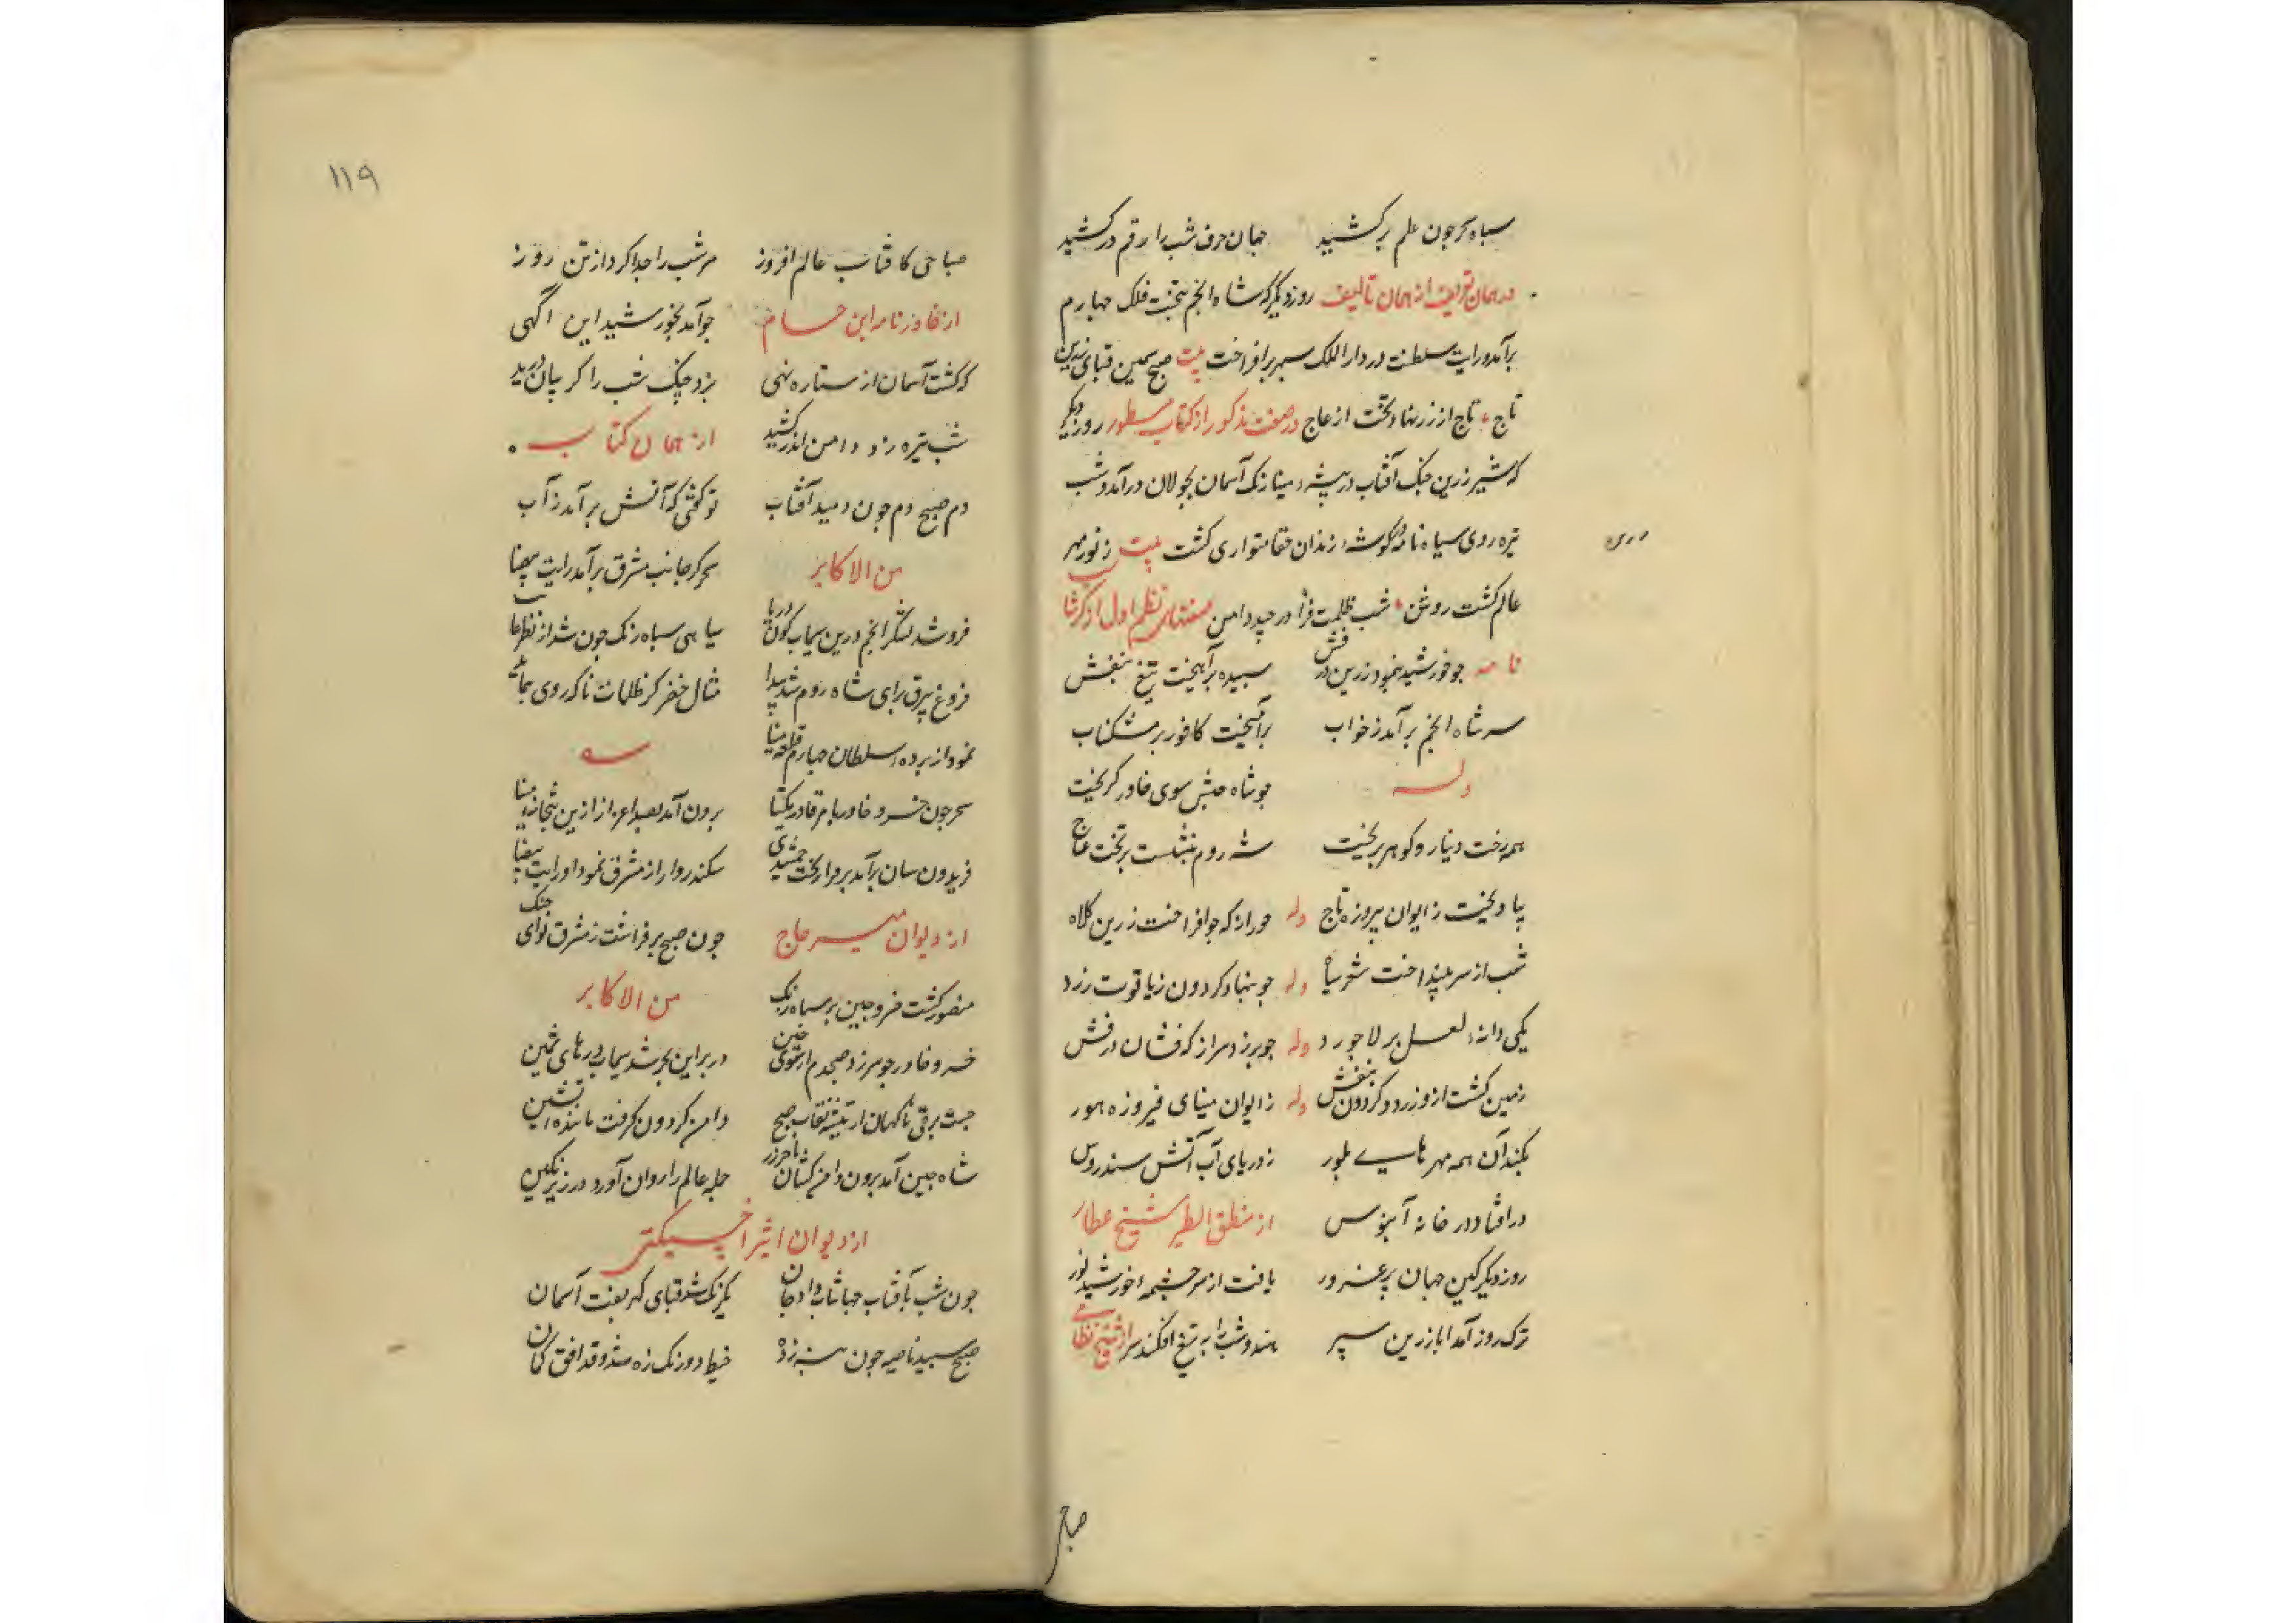 سپاه سحر چون علم برکشید جهان حرف شب را رقم درکشید
در همان تعریف از همان تألیف روز دیگر که شاه انجم بتخت فلک چهارم
برآمد و رایت سلطنت در دار الملک سپهر برافراخت بیت صبح سیمین قبای زرین
تاج تاج از زر نهاد و تخت از عاج در صفت مذکور از کتاب مسطور روز دیگر
که شیر زرین چنگ آفتاب در بیشهٔ مینا رنک آسمان بجولان درآمد و شب
تیره روی سیاه نامه در گوشهٔ زندان خفا متواری کشت بیت ز نور مهر
عالم کشت روشن شب ظلمت فزا در چید دامن نظم اول از کرشا
نامه چو خورشید بنمود زرین درفش سپیده برآهیخت تیغ بنفش
سر شاه انجم برآمد ز خواب برآمیخت کافور بر مشکناب
وله چو شاه حبش سوی خاور کریخت
همه رخت دینار و کوهر بریخت شه روم بنشست بر تخت عاج
بیاویخت ز ایوان پیروزه تاج وله خور از که چو افراخت زرین کلاه
شب از سر بینداخت شعر سیاه وله چو بنهاد کردون ز یاقوت زرد
یکی دانهٔ لعل بر لاجورد وله چو برزد سر از که فشان درفش
زمین کشت ازو زرد و کردون بنفش وله ز ایوان مینای فیروزه هور
بکند آن همه مهرهای بلور ز دریای آب آتش سندروس
در افتاد در خانه آبنوس از منطق الطیر شیخ عطار
روز دیگر کین جهان پر غرور یافت از سر چشمهٔ خورشید نور
ترک روز آمد ابا زرین سپر هندو شب را به تیغ افکند سر از شیخ نظامی
صباحی
۱۱۹
صباحی کافتاب عالم افروز سر شب را جدا کرد از تن روز
از خاورنامه ابن حسام چو آمد بخورشید این آگهی
که کشت آسمان از ستاره تهی بزد چنگ شب را کریبان درید
شب تیره زو دامن اندر کشید از همان کتاب
دم صبح دم چون دمید آفتاب تو گفتی که آتش برآمد ز آب
من الاکابر سحر کز جانب مشرق برآمد رایت بیضا
فرو شد لشکر انجم درین سیماب گون دریا سپاهی سیاه زنک چون شد از نظرها
فروغ بیرق رای شاه روم شد پیدا مثال خضر کز ظلمات ناکه روی
نمود از پرده سلطان چهارم قلعه مینا
سحر چون خسرو خاور بامر قادر یکتا برون آمد بصد اعزاز ازین بتخانه مینا
فریدون سان برآمد بر فراز تخت جمشیدی سکندر وار از مشرق نمود او رایت بیضا
از دیوان میر حاج چون صبح برفراشت ز مشرق لوای جنک
منصور کشت خسرو چین بر سپاه زنک من الاکابر
خسرو خاور چو سر زد صبحدم از سوی ختن در بر این بحر شد سیماب درهای ثمین
جست برقی ناکهان از تیشه نقاب صبح دامن کردون کرفت مانندهٔ آتشین
شاه چین آمد برون دامن کشان جمله عالم را روان آورد در زیر نکین
از دیوان اثیر اخسیکتی
چون شب بآفتاب جهانتاب داد جان یکرنک شد قبای کهربفت آسمان
صبح سپید ناصیه چون خیط دو رنک زه شد و قد افق کمان